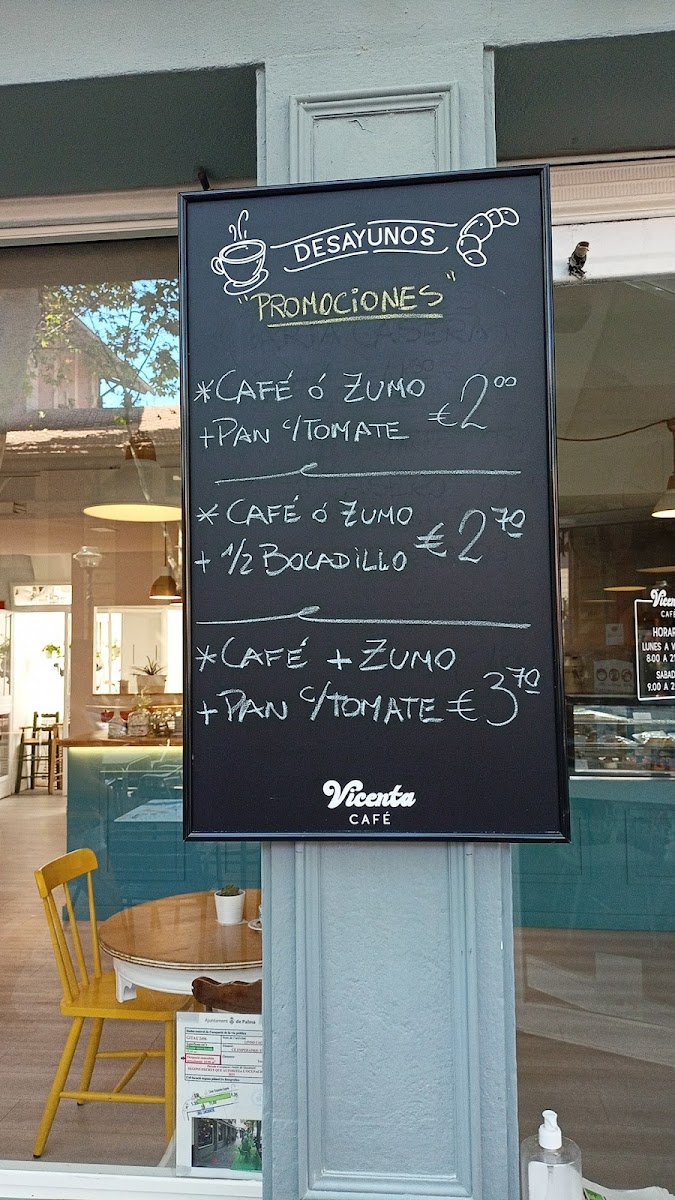 DESAYUNOS
"PROMOCiONES"
*CAFÉ ó ZUMO
+PAN C/TOMATE €2⁰⁰
*CAFÉ ó ZUMO
+ 1/2 BOCADiLLO €2⁷⁰
*CAFÉ + ZUMO
+PAN C/TOMATE €3⁷⁰
Vicenta
CAFÉ
HORAR
LUNES A V
8:00 A 2
SABAD
9.00 A 2
Ajuntament de Palma